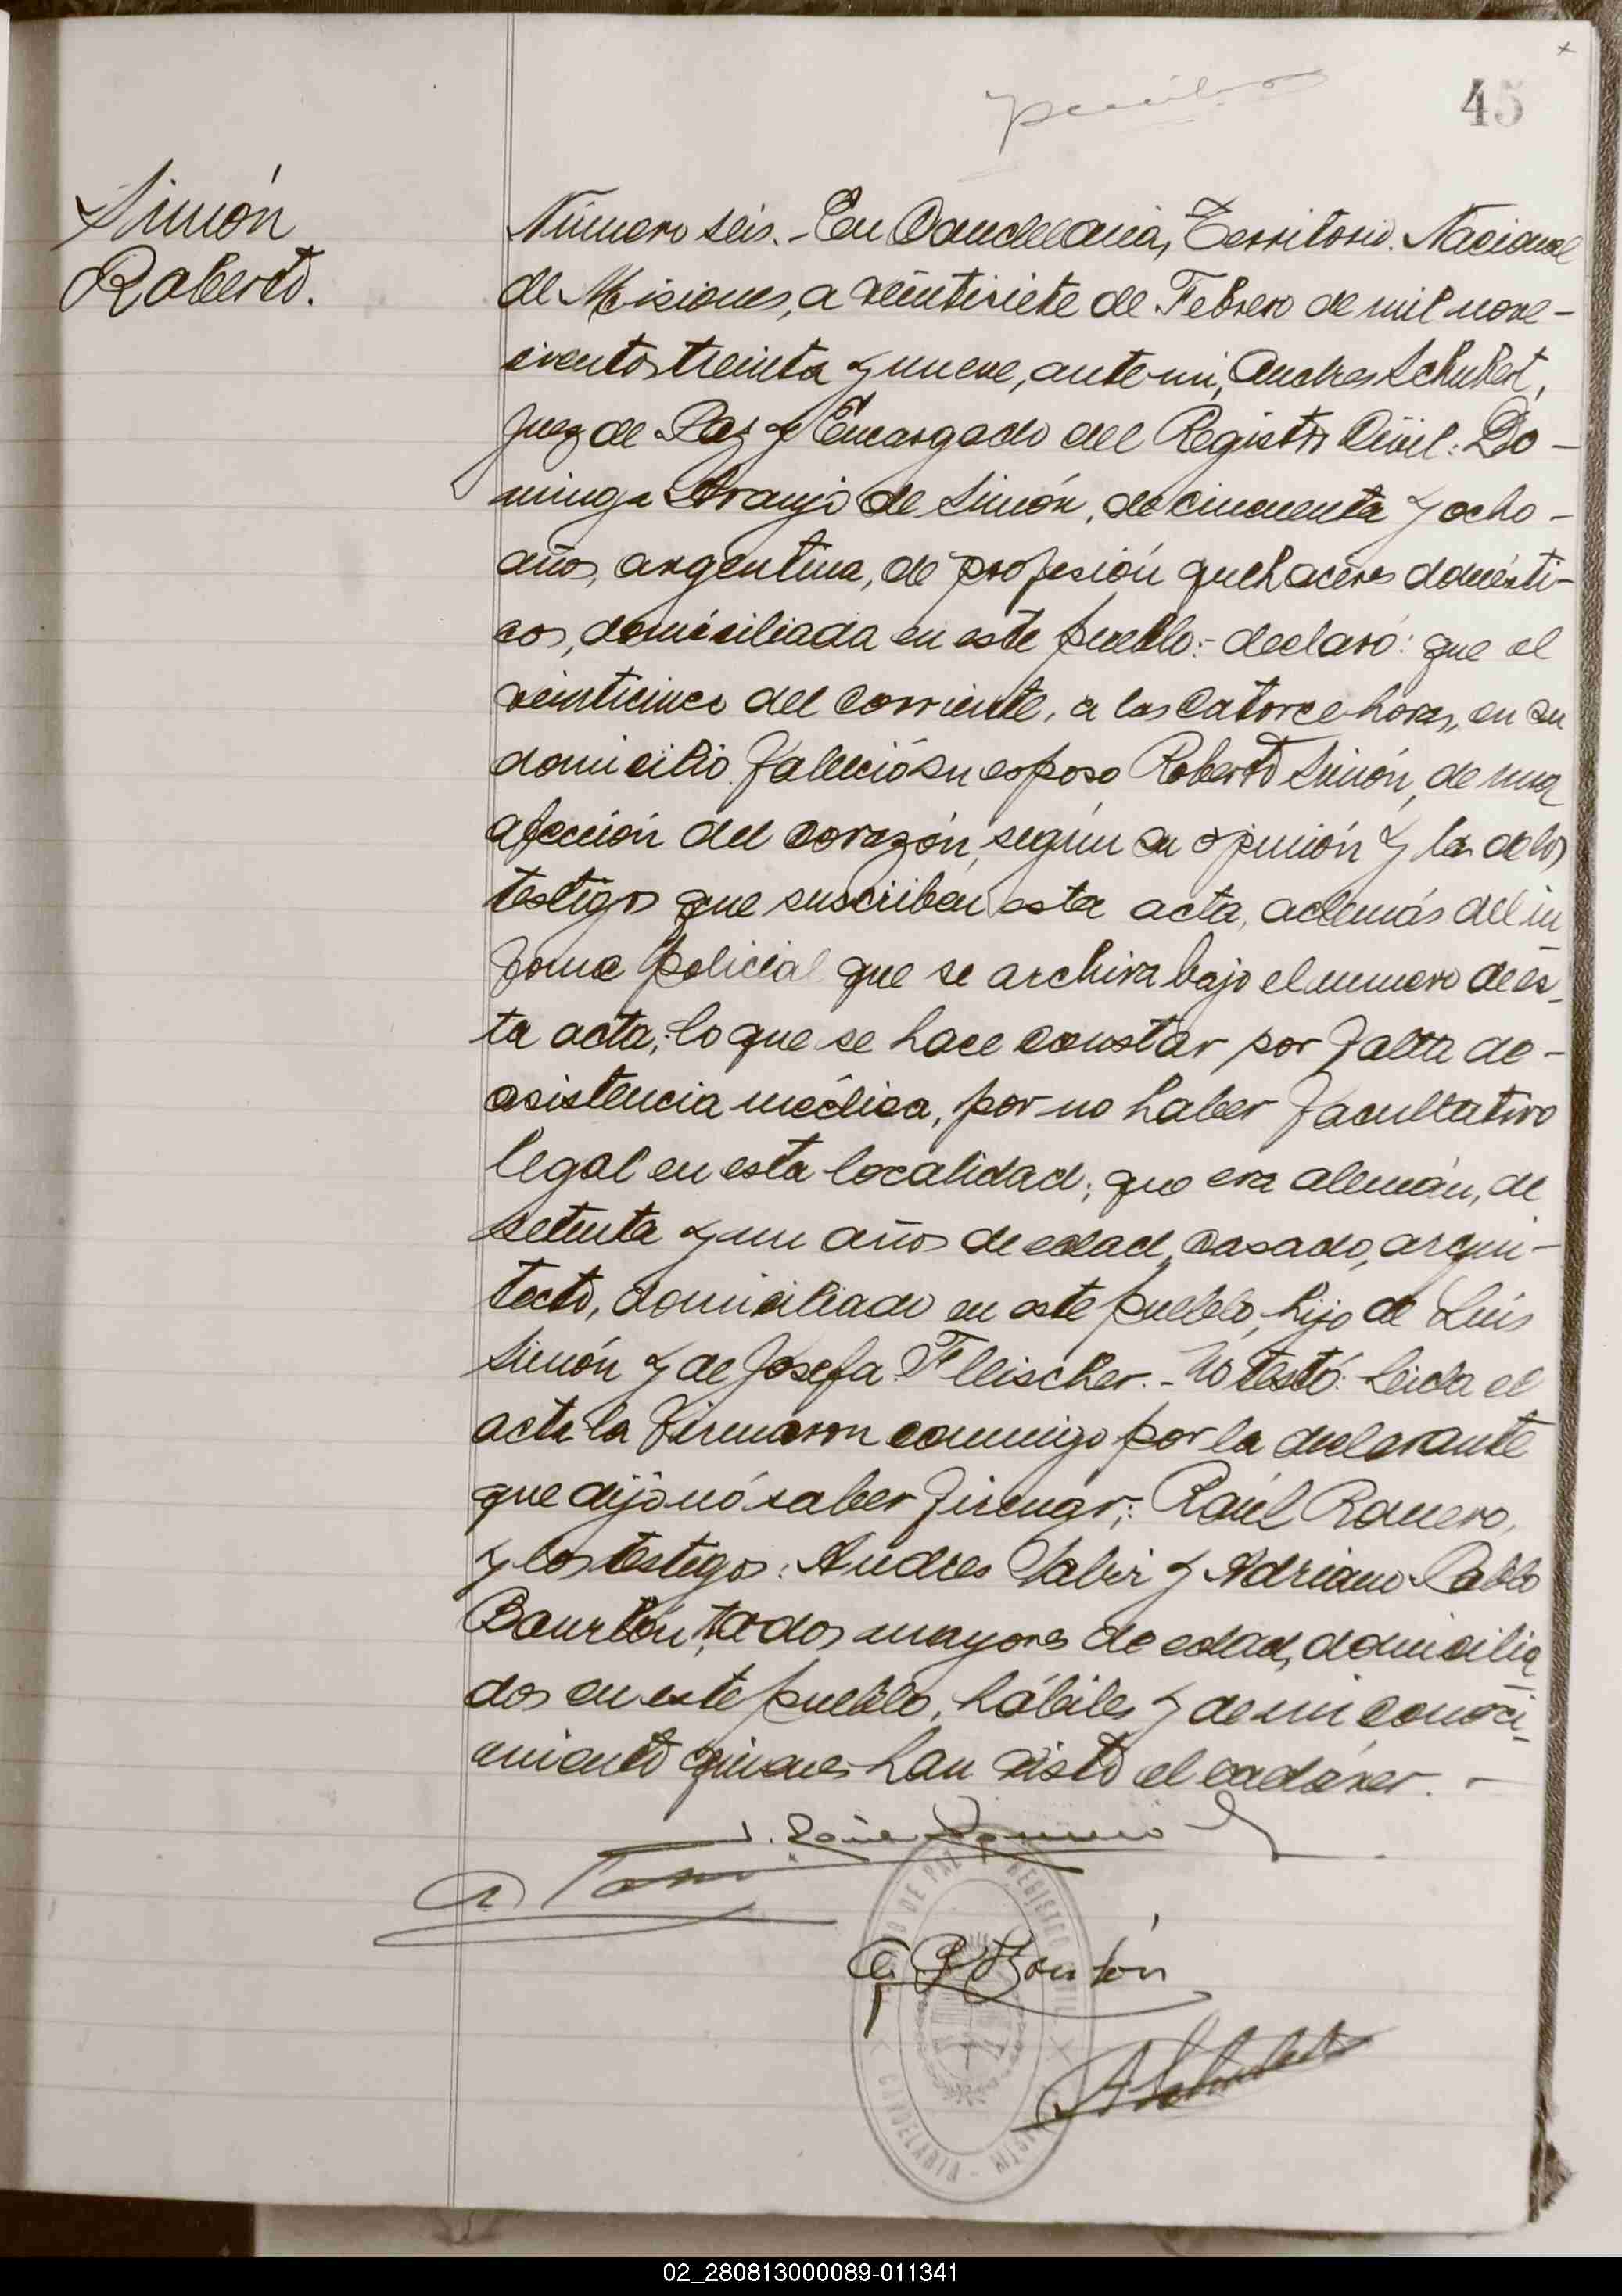 45
Simón
Roberto.
Número seis.- En Candelaria, Territorio Nacional
de Misiones, a veintisiete de Febrero de mil nove-
cientos treinta y nueve, ante mi, Andres Schubert,
Juez de Paz y Encargado del Registro Civil: Do-
minga Araujo de Simón, de cincuenta y ocho-
años, argentina, de profesión quehaceres domésti-
cos, domiciliada en este pueblo:- declaró: que el
veinticinco del corriente, a las catorce horas, en su
domicilio falleció su esposo Roberto Simón, de una
afección del corazón, según su opinión y la de los
testigos que suscriben esta acta, además del in
forme policial que se archiva bajo el numero de es-
ta acta; lo que se hace constar por falta de-
asistencia médica, por no haber facultativo
legal en esta localidad; que era alemán, de
setenta y un años de edad, casado, arqui-
tecto, domiciliado en este pueblo, hijo de Luis
Simón y de Josefa Fleischer.- No testó: Leida el
acta la firmaron conmigo por la declarante
que dijo nó saber firmar; Raúl Romero,
y los testigos: Andres y Adriano Pablo
Bourlón, todos mayores de edad, domicilia
dos en este pueblo, hábiles y de mi conoci-
miento quienes han visto el cadáver.-
REGISTRO CIVIL
CANDELARIA - MISIONES
02_280813000089-011341